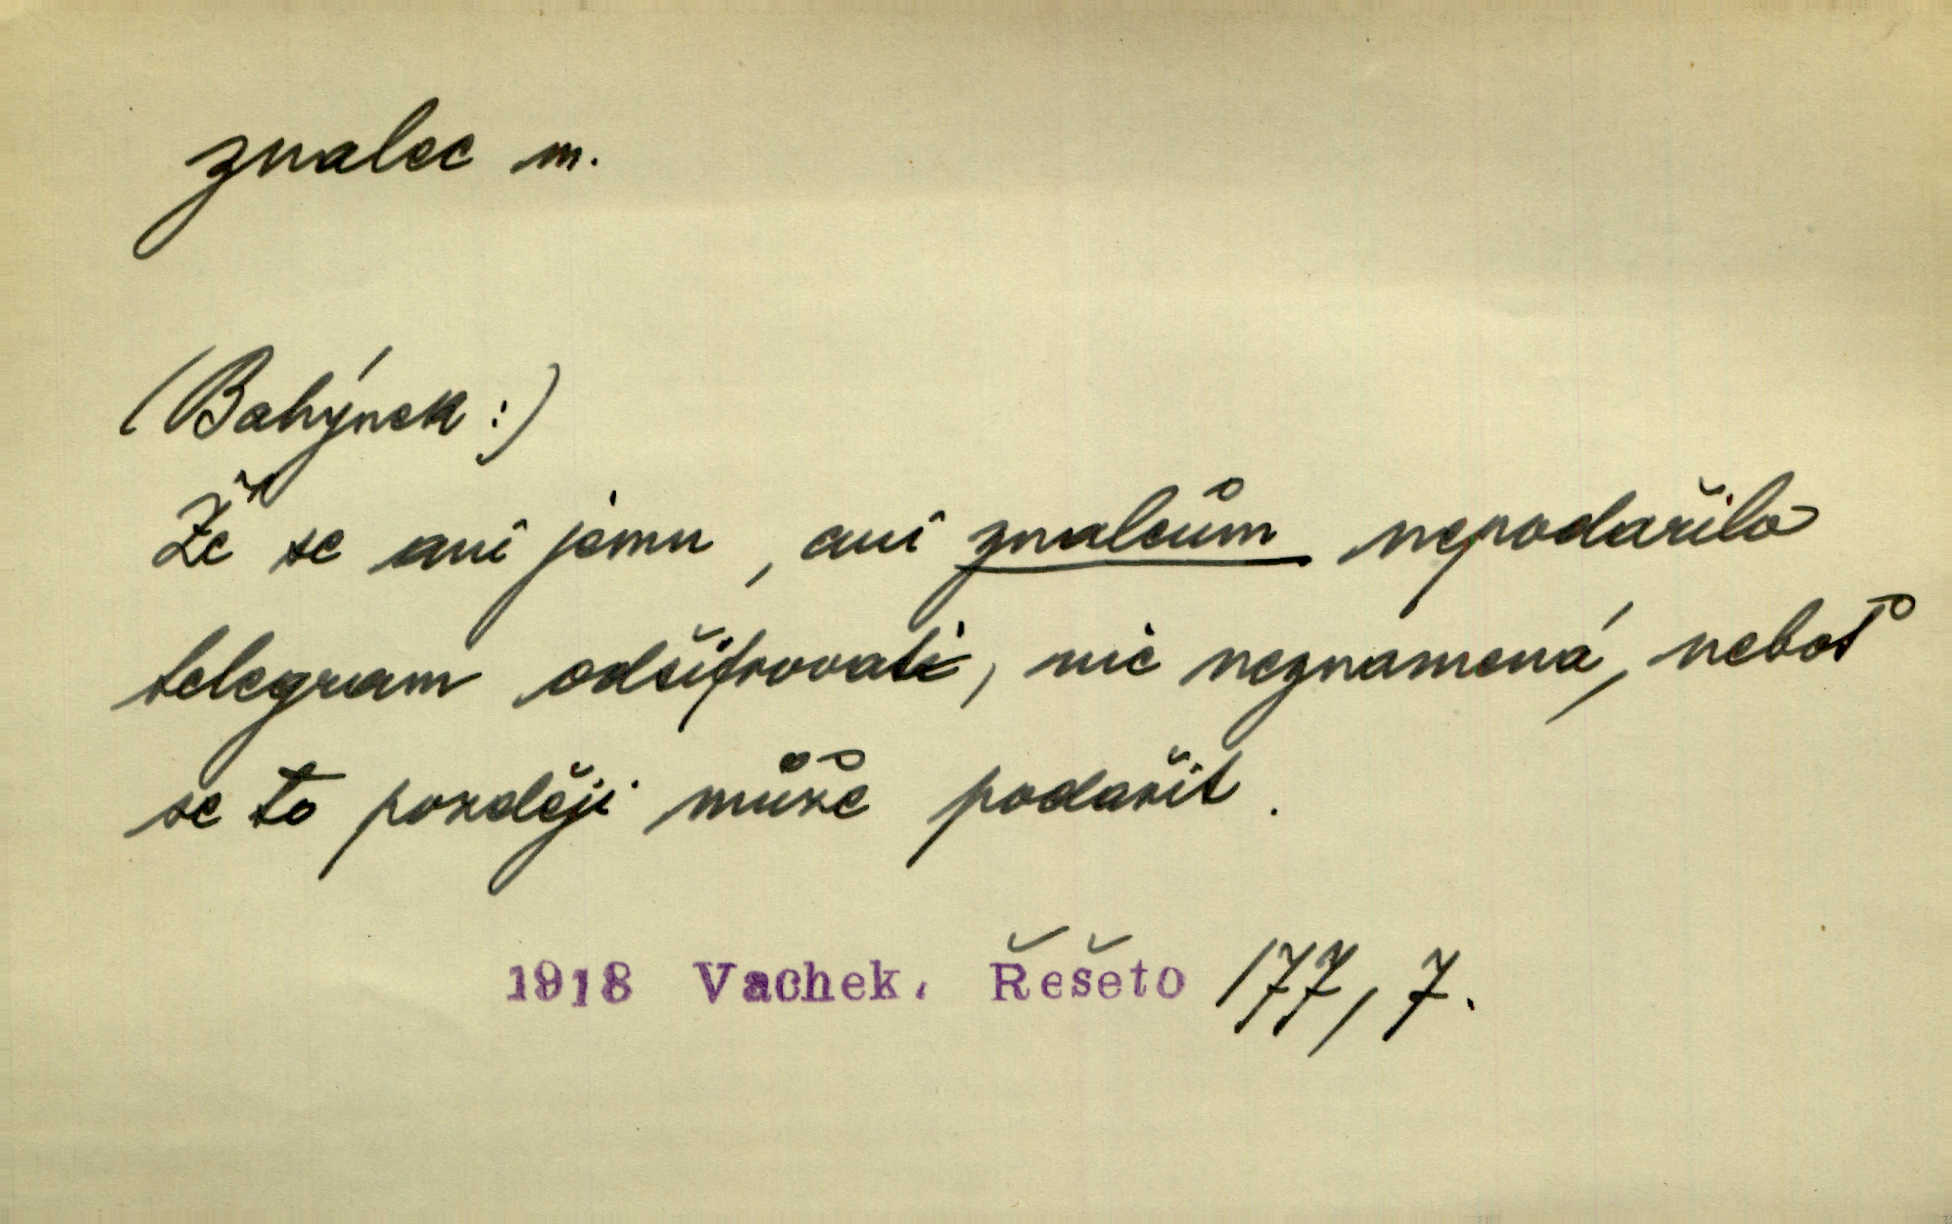 znalec m.
(Bahýnek:)
Že se ani jemu, ani znalcům nepodařilo
telegram odšifrovati, nic neznamená, neboť
se to později může podařit.
1918 Vachek. Řešeto 177, 7.